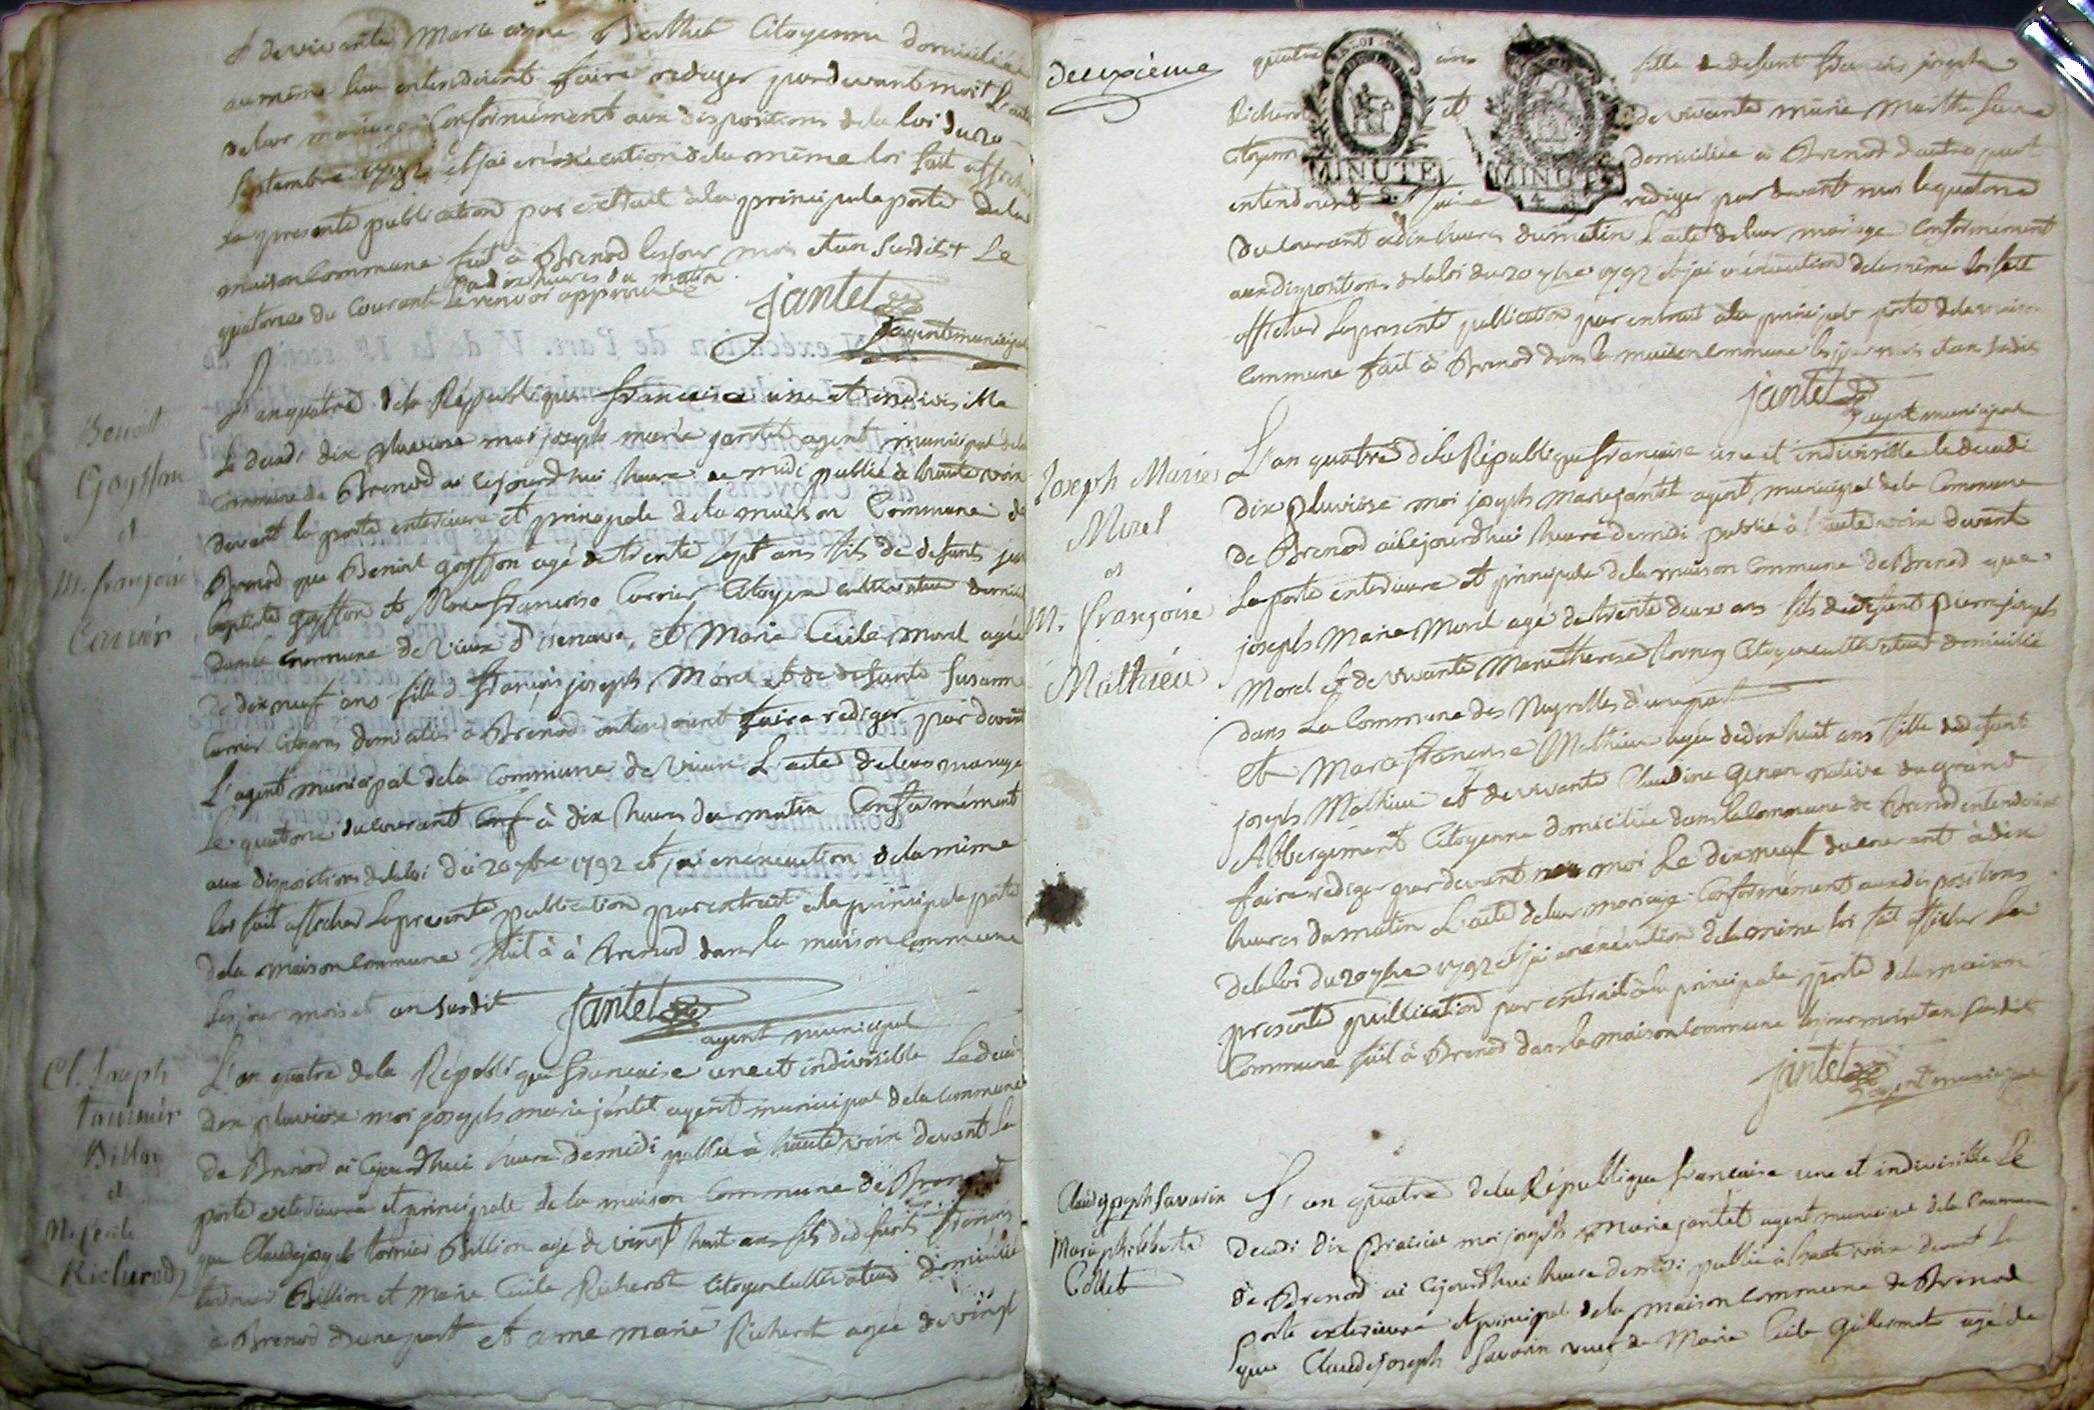 & de vivante Marie anne Berthet Citoyenne domiciliée
au même lieu entendoient faire rediger pardevant moi L'acte
de leur mariage Conformément aux dispositions de la loi du 20
Septembre 1792 et j'ai en éxécution de la même loi fait afficher
la presente publication par extrait à la principale porte de la
maison Commune fait à Brenod les jour mois et an Susdit + Le
quatorze du Courant Le renvoi approuvé
+ a dix heures du matin
jantet
agent municipal
Benoit
Goyffon
et
M. françoise
Carrier
L'an quatre de la République francaise une et indivisible
Le decadi dix pluviose moi joseph marie jantet agent municipal de la
Commune de Brenod ai cejourd'hui heure de midi publié à haute voix
devant la porte exterieure et principale de la maison Commune de
Brenod que Benoit goyffon agé de trente sept ans fils de defunts jean
baptiste goyffon et Marie francoise Carrier Citoyen cultivateur domicilié
dans la Commune de Vieux d'Isenave, et Marie Cecile Morel agée
de dix neuf ans fille de francois joseph Morel et de defunte Susanne
Carrier Citoyens domiciliés à Brenod entendoient faire rediger par devant
L'agent municipal de la Commune de Vieux L'acte de leur mariage
Le quatorze du courant à dix heures du matin Conformément
aux dispositions de la loi du 20 7bre 1792 et j'ai en éxécution de la même
loi fait afficher la presente publication par extrait à la principale porte
de la maison Commune fait à à Brenod dans la maison Commune
Les jour mois et an Susdit jantet
agent municipal
Cl. Joseph
Tournier
Billon
et
M. Cecile
Richerod
L'an quatre de la République francaise une et indivisible Le decadi
dix pluviose moi joseph marie jantet agent municipal de la Commune
de Brenod ai cejourd'hui heure de midi publié à haute voix devant la
porte exterieure et principale de la maison Commune de Brenod
que Claude joseph tornier Billion agé de vingt huit ans fils de defunts francois
tornier Billion et Marie Cecile Richerot Citoyen cultivateur domicilié
à Brenod d'une part et anne marie Richerot agée de vingt
deuxieme
quatre ans fille de defunt francois joseph
Richerot et de vivante marie Marthe Savarin
Citoyenne domiciliée à Brenod d'autre part
MINUTE
MINUTE
entendoient faire rediger par devant moi le quatorze
du courant à dix heures du matin L'acte de leur mariage Conformément
aux dispositions de la loi du 20 7bre 1792 et j'ai en éxécution de la même loi fait
afficher la presente publication par extrait à la principale porte de la maison
Commune fait à Brenod dans la maison Commune les jour mois et an Susdit
jantet
agent municipal
Joseph Marie
Morel
et
M. françoise
Mathieu
L'an quatre de la République francaise une et indivisible le decadi
dix pluviose moi joseph marie jantet agent municipal de la Commune
de Brenod ai cejourd'hui heure de midi publié à haute voix devant
La porte exterieure et principale de la maison Commune de Brenod que
joseph Marie Morel agé de trente deux ans fils de defunt pierre joseph
Morel et de vivante Marie therese Citoyen cultivateur domicilié
dans La Commune des Neyrolles d'une part
et Marie francoise Mathieu agée de dix huit ans fille de defunt
joseph Mathieu et de vivante Claudine native du grand
Abbergement Citoyenne domiciliée dans la Commune de Brenod entendoient
faire rediger par devant moi Le dix neuf du courant à dix
heures du matin L'acte de leur mariage Conformément aux dispositions
de la loi du 20 7bre 1792 et j'ai en éxécution de la même loi fait afficher La
presente publication par extrait à la principale porte de la maison
Commune fait à Brenod dans la maison Commune les jour mois et an Susdit
jantet
agent municipal
Claude joseph Savarin
Marie philiberte
Collet
L'an quatre de la République francaise une et indivisible Le
decadi dix moi joseph Marie jantet agent municipal de la Commune
de Brenod ai cejourd'hui heure de midi publié à haute voix devant La
porte exterieure et principal de la maison Commune de Brenod
que Claude joseph Savarin veuf de Marie Cecile Guillermet agé de